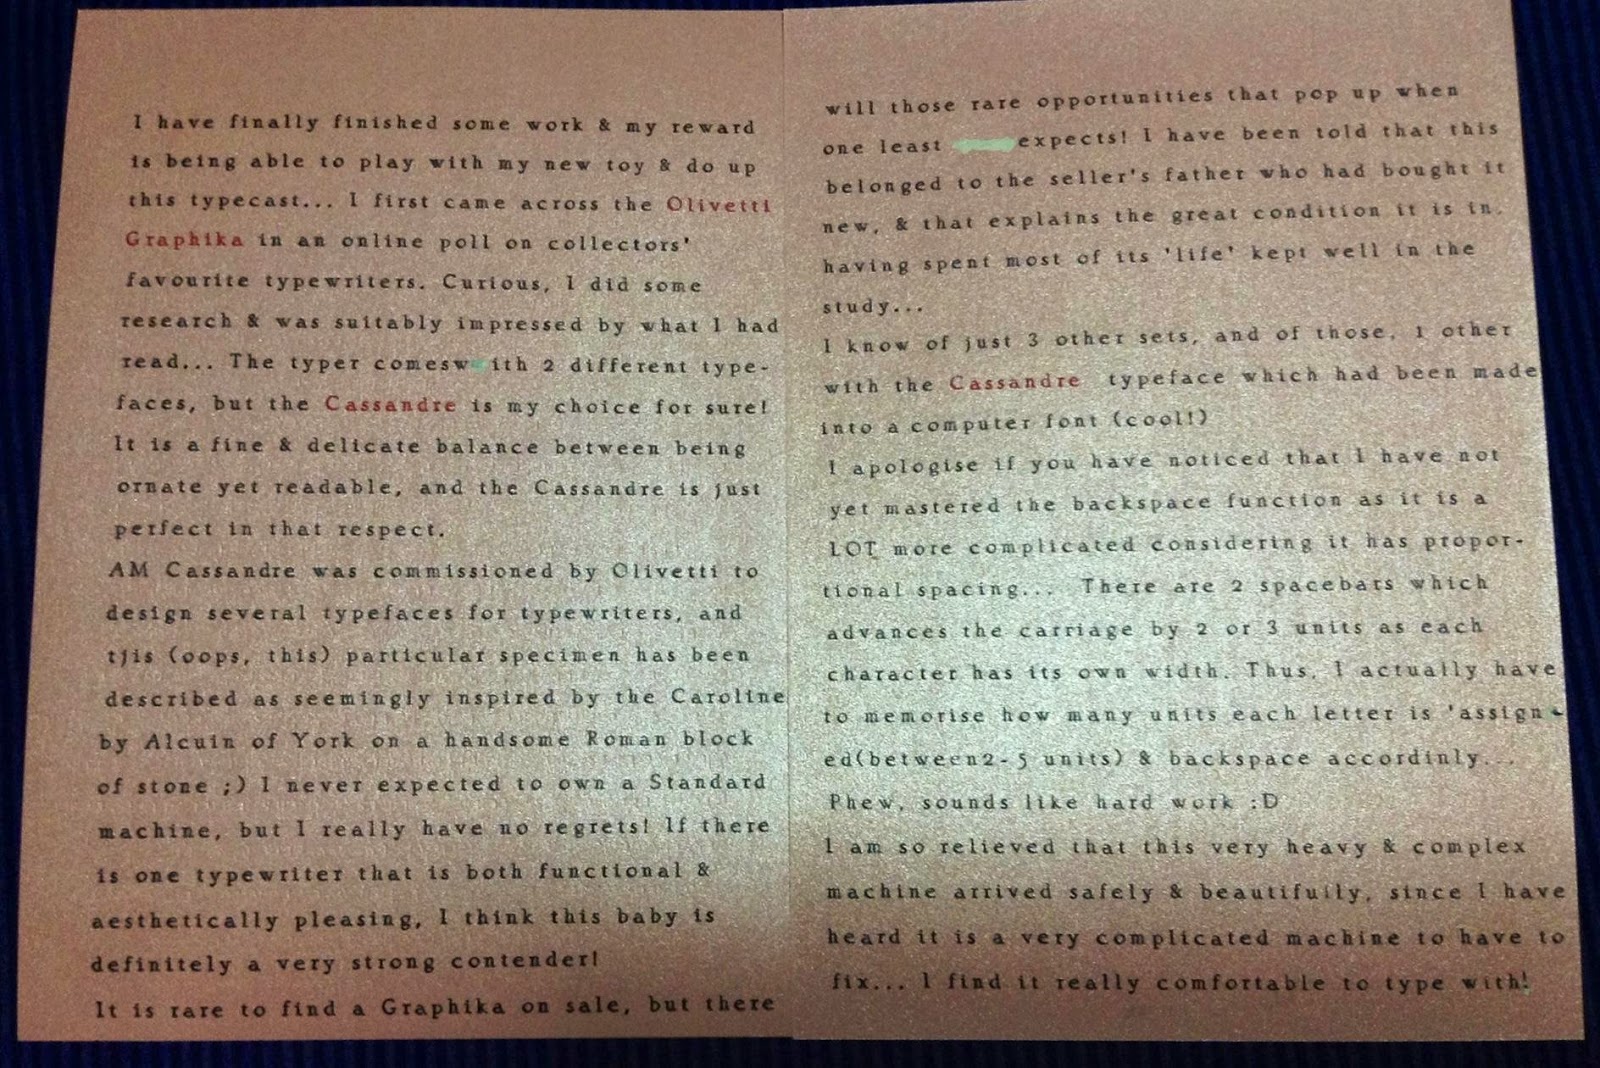 I have finally finished some work & my reward
is being able to play with my new toy & do up
this typecast... I first came across the Olivetti
Graphika in an online poll on collectors'
favourite typewriters. Curious, I did some
research & was suitably impressed by what I had
read... The typer comesw ith 2 different type-
faces, but the Cassandre is my choice for sure!
It is a fine & delicate balance between being
ornate yet readable, and the Cassandre is just
perfect in that respect.
AM Cassandre was commissioned by Olivetti to
design several typefaces for typewriters, and
tjis (oops, this) particular specimen has been
described as seemingly inspired by the Caroline
by Alcuin of York on a handsome Roman block
of stone ;) I never expected to own a Standard
machine, but I really have no regrets! If there
is one typewriter that is both functional &
aesthetically pleasing, I think this baby is
definitely a very strong contender!
It is rare to find a Graphika on sale, but there
will those rare opportunities that pop up when
one least expects! I have been told that this
belonged to the seller's father who had bought it
new, & that explains the great condition it is in,
having spent most of its 'life' kept well in the
study...
I know of just 3 other sets, and of those, 1 other
with the Cassandre typeface which had been made
into a computer font (cool!)
I apologise if you have noticed that I have not
yet mastered the backspace function as it is a
LOT more complicated considering it has propor-
tional spacing... There are 2 spacebars which
advances the carriage by 2 or 3 units as each
character has its own width. Thus, I actually have
to memorise how many units each letter is 'assign-
ed(between2-5 units) & backspace accordinly...
Phew, sounds like hard work :D
I am so relieved that this very heavy & complex
machine arrived safely & beautifully, since I have
heard it is a very complicated machine to have to
fix... I find it really comfortable to type with!